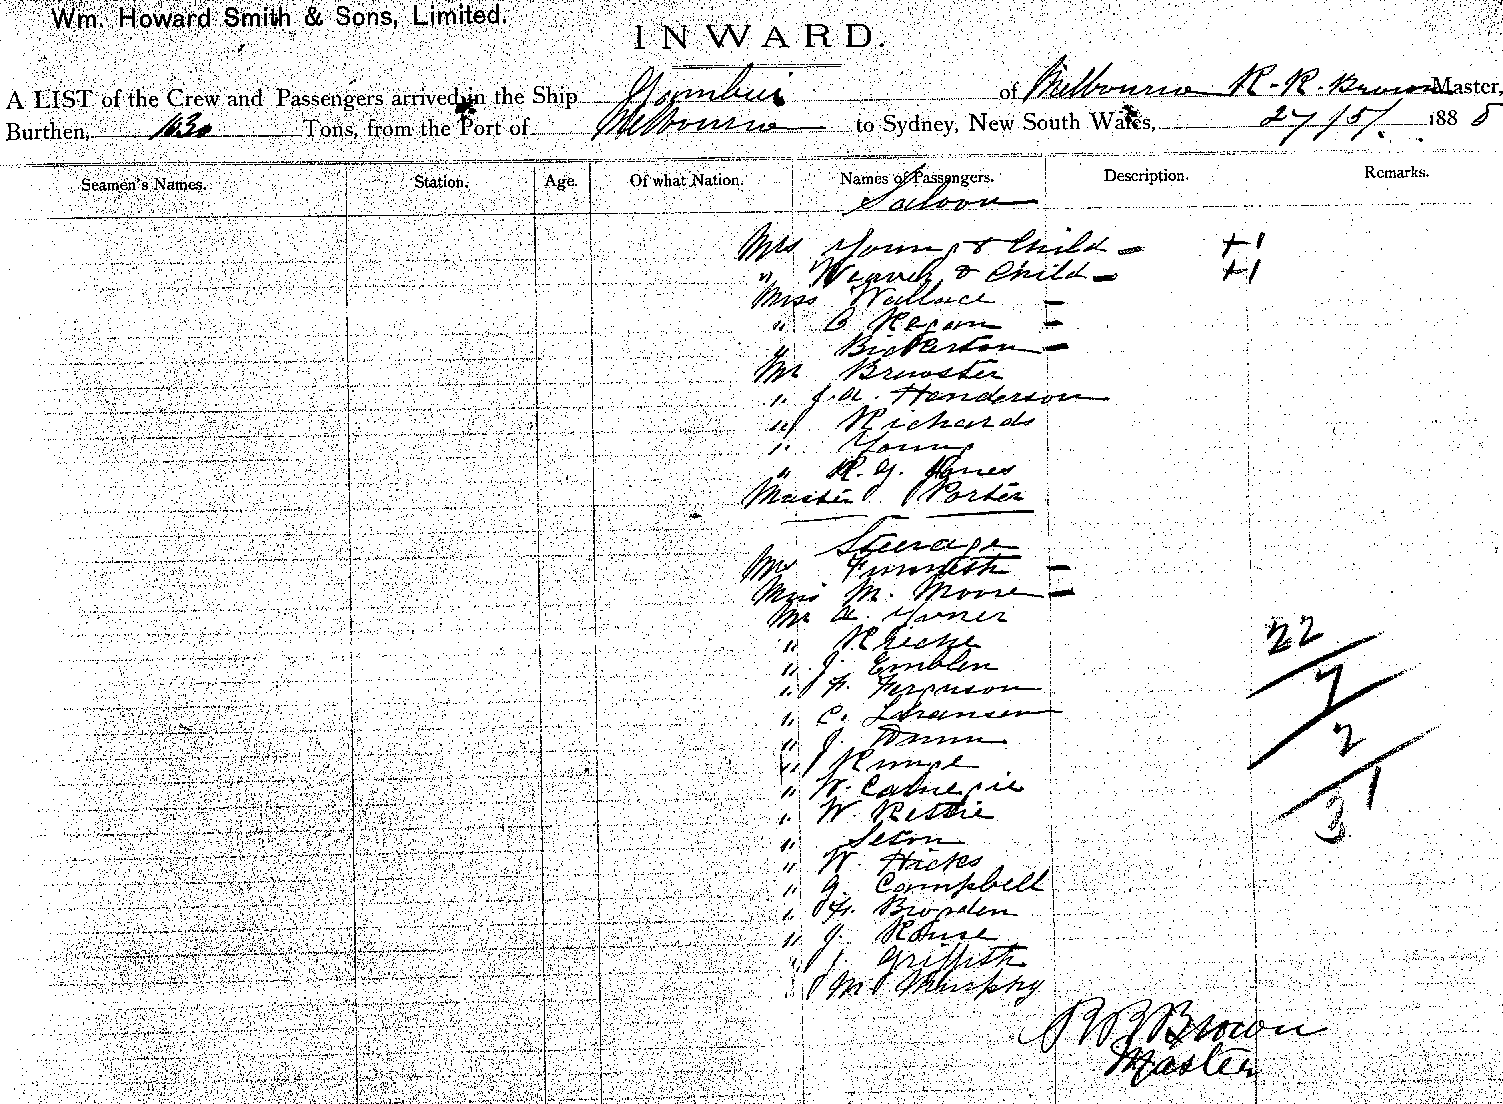 Wm. Howard Smith & Sons, Limited.
INWARD.
A LIST of the Crew and Passengers arrived in the Ship Gambier of Melbourne R. R. Brown Master,
Burthen, Tons, from the Port of Melbourne to Sydney, New South Wales, 27/5/ 1888
Seamen's Names. Station. Age. Of what Nation. Names of Passengers. Description. Remarks.
Saloon
Mrs Young & Child - +1
" Weaver & Child - +1
Miss Wallace -
" C Regan -
" Bickerton -
Mr Brewster
" J. A. Henderson
" Richards
" Young
" R. G. Jones
Master Porter
Steerage
Mrs -
Miss M. Moore -
Mr A.
"
" J. Emblen
" F. Ferguson
" C.
" J. Dunn
" Runge
" W. Carnegie
" W. Rettie
" Seton
" W. Hicks
" G. Campbell
" F. Brogden
" J. Rouse
" J. Griffith
" M. Murphy
22
7
2
1
3
R R Brown
Master